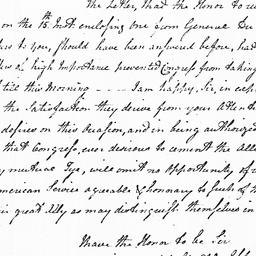 The Letter, I had the Honor to
on the 15th Inst enclosing one from General Du
to you, should have been answered before, had
of high Importance prevented Congress from taking
till this Morning - - - - I am happy, Sir, in
the Satisfaction they derive from your Attent
desires on this Occasion, and in being authorized
that Congress, ever desirous to cement the Alli
by mutual Tyes, will omit no Opportunity of
American Service agreable & honorary to such of
great Ally as may distinguish themselves in
I have the Honor to be Sir